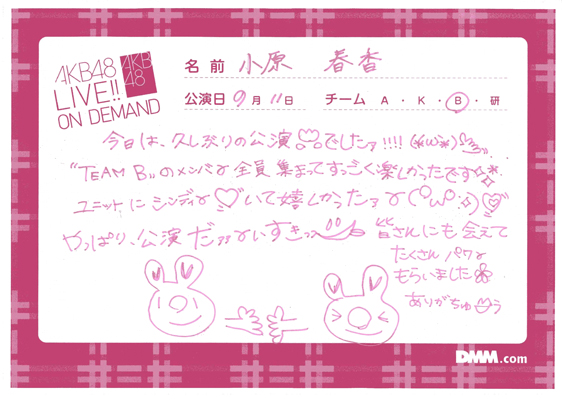 AKB48
LIVE!!
ON DEMAND
AKB
48
名前 小原 春香
公演日 9月11日 チーム A・K・B・研
今日は、久しぶりの公演でしたァ!!!!(*'ω'*)
"TEAM B"のメンバー全員集まってすっごく楽しかったです
ユニットにシンディーいて嬉しかったァー(°ω°;)
やっぱり、公演だァァーいすきっっ 皆さんにも会えて
たくさんパワー
もらいました
ありがちゅーう
DMM.com